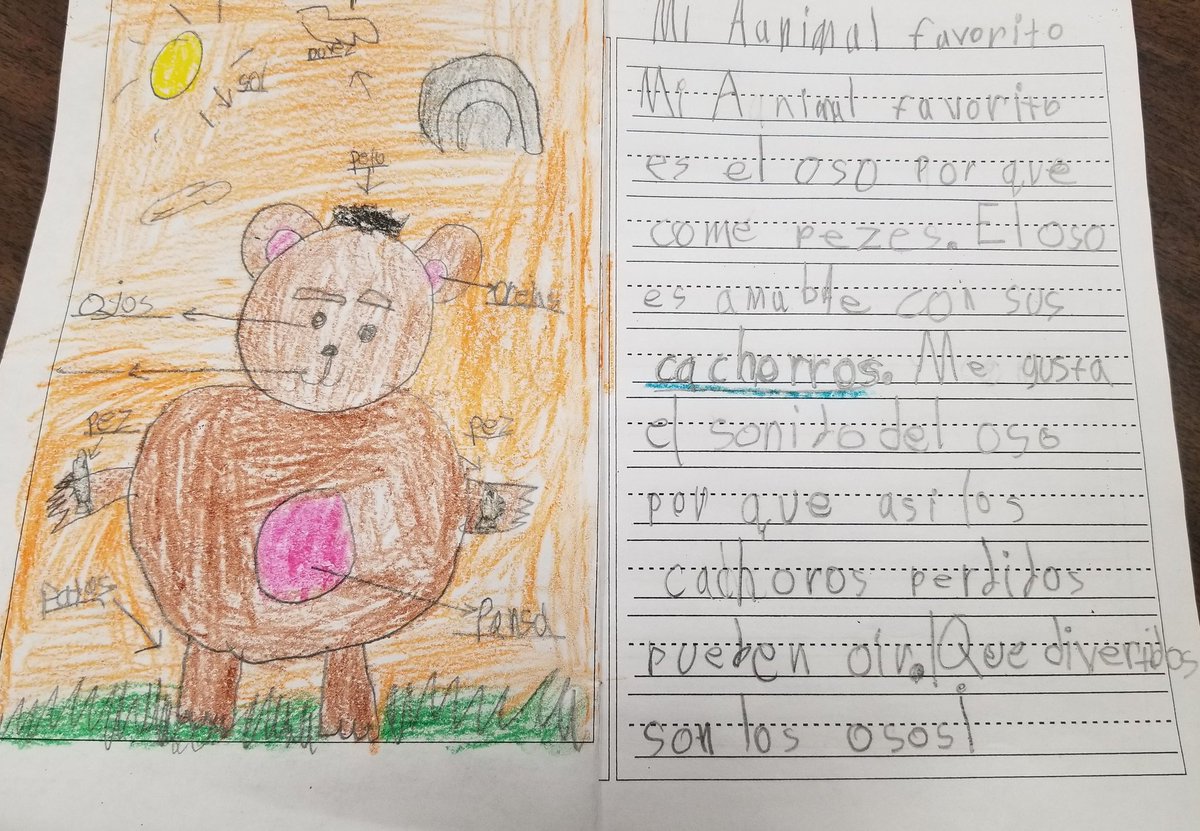 sol
pelo
Ojos
pez
pez
Patas
Pansa
Mi Aanimal favorito
Mi Animal favorito
es el oso por que
come pezes. El oso
es amable con sus
cachorros. Me gusta
el sonido del oso
por que asi los
cachoros perdidos
pueden oir. ¡Que divertidos
son los osos!